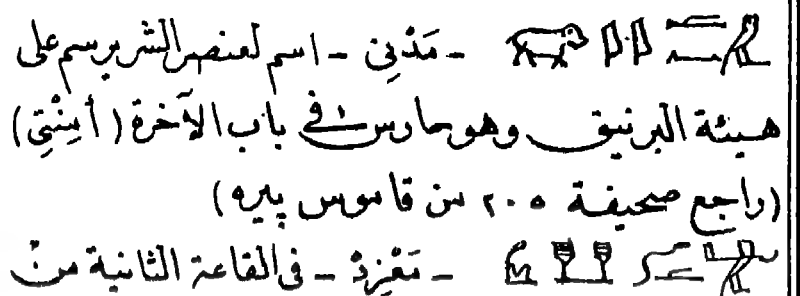 - مَدْنِى - اسم لعنصر الشر يرسم على
هيئة البرنيق وهو حارس فى باب الآخرة (أمِنْتِى)
(راجع صحيفة ٢٠٥ من قاموس پيره)
- مَغْزِدْ - فى القاعة الثانية من